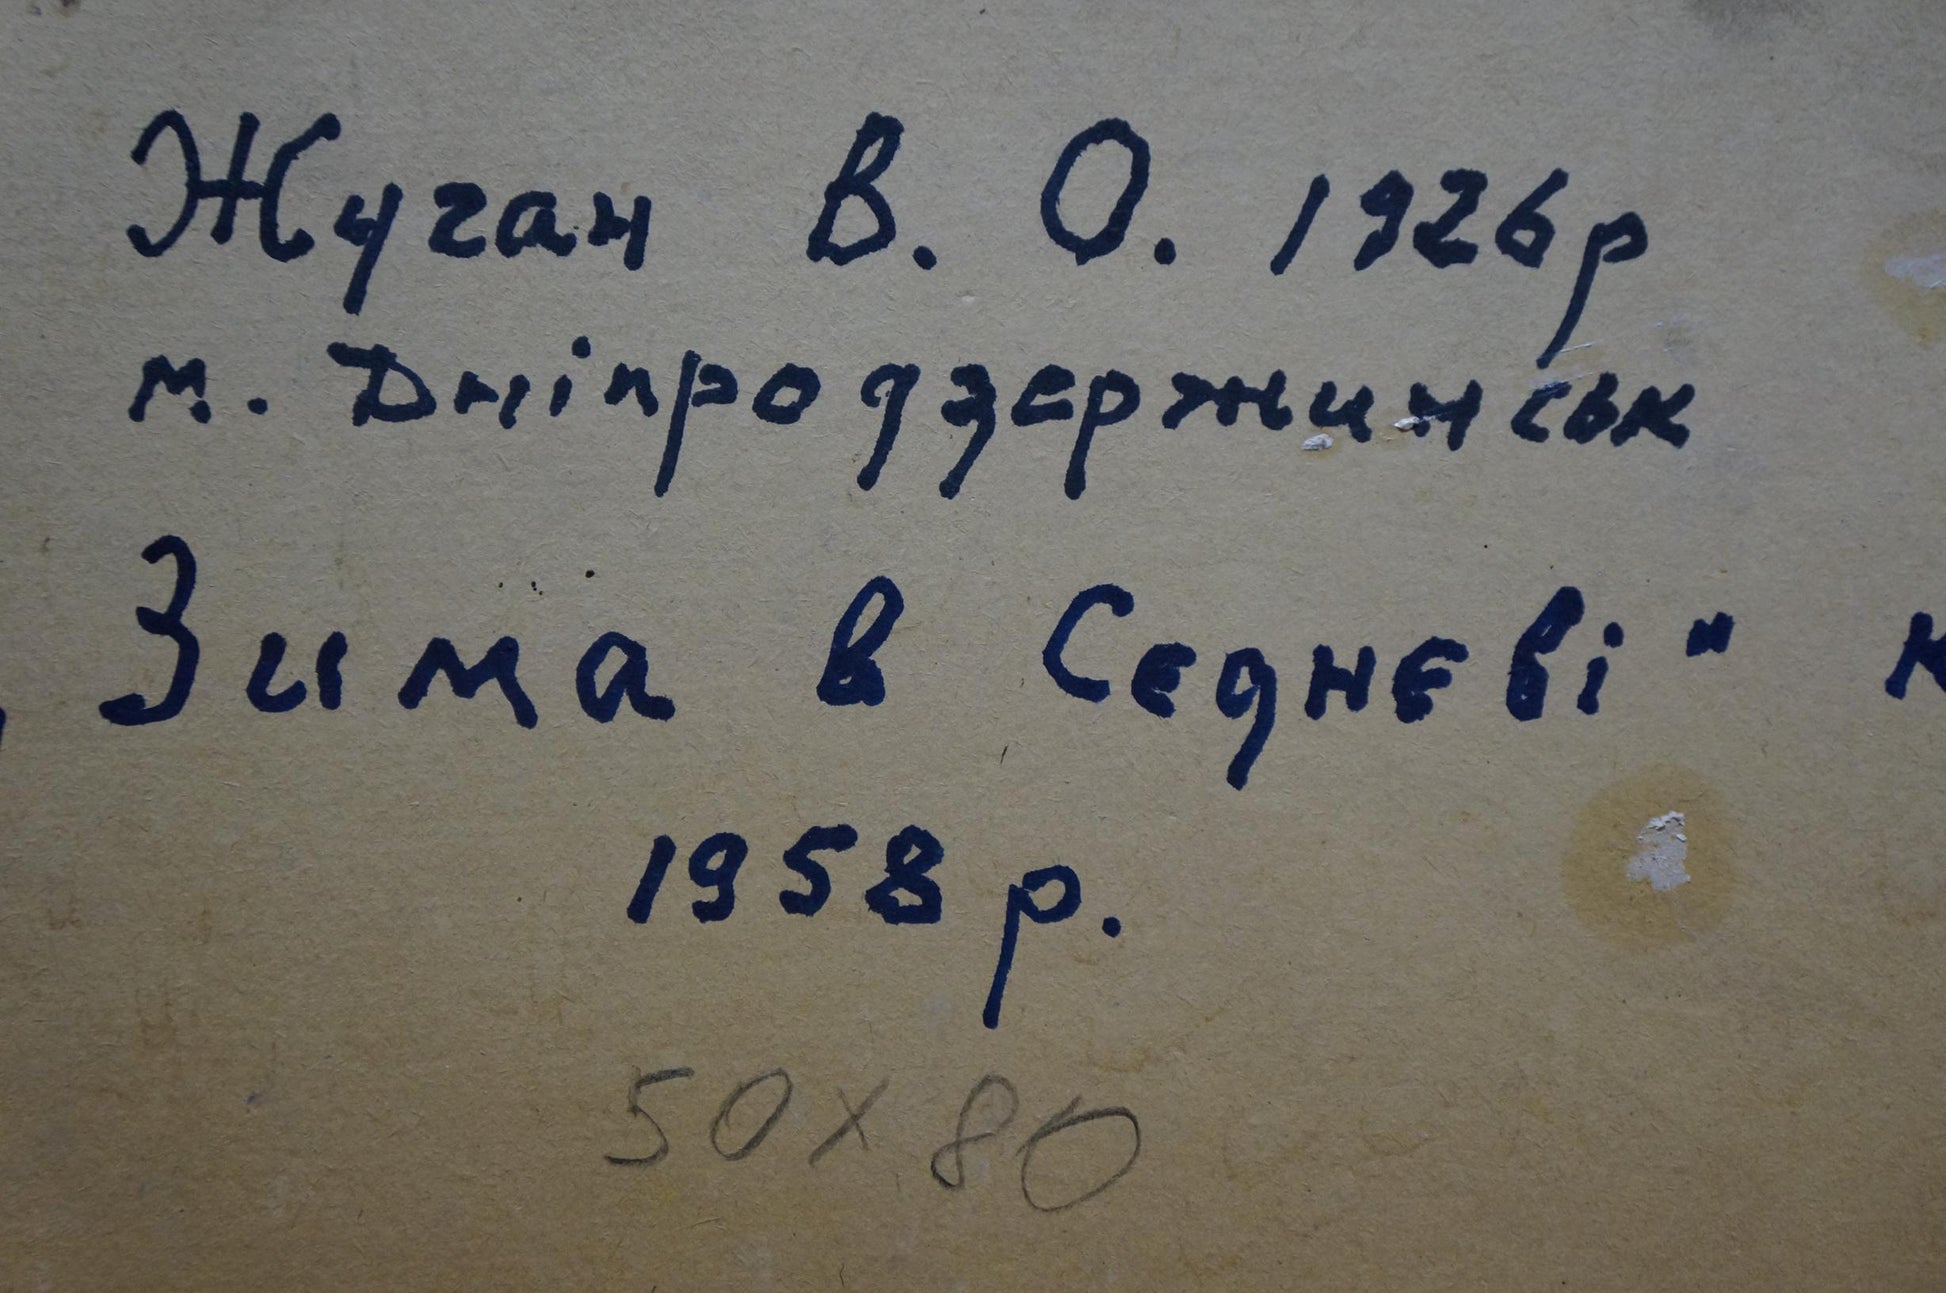 Жуган В. О. 1926р
м. Дніпродзержинськ
„Зима в Сєднєві"
1958 р.
50 х 80